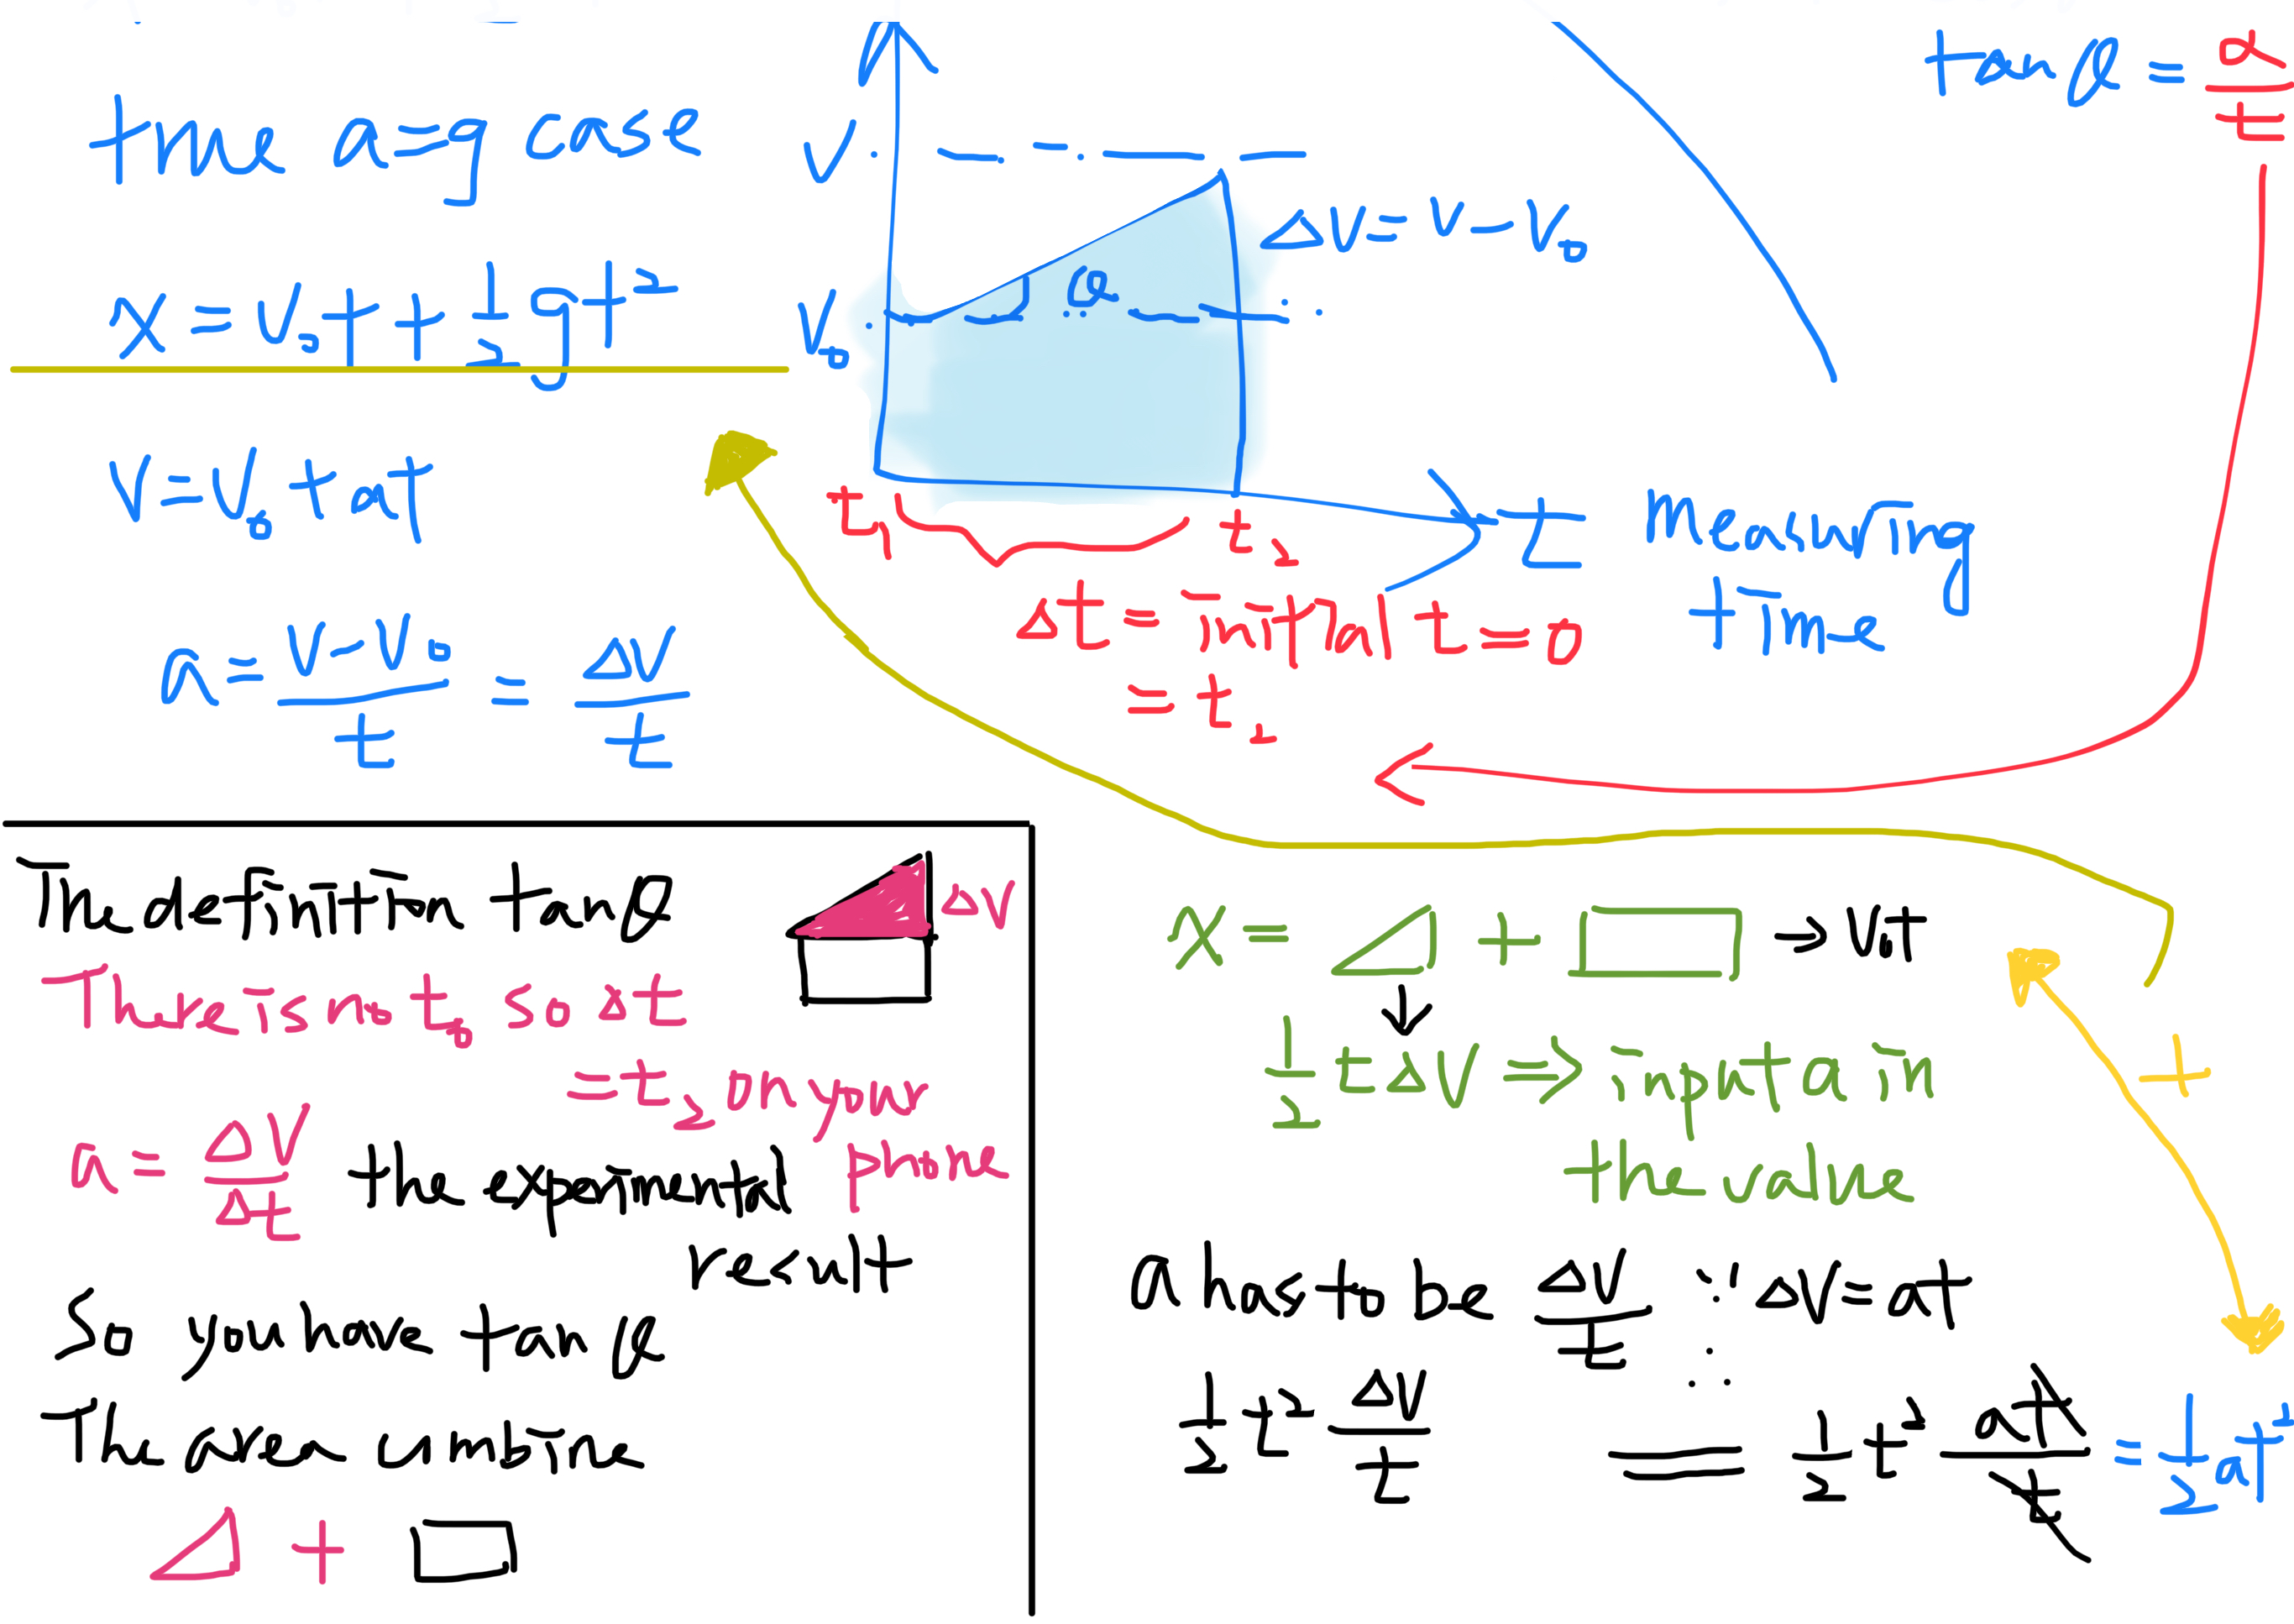 true a=g case
x = V₀t + ½gt²
V = V₀ + at
a = (V-V₀)/t = ΔV/t
V
V₀
θ
ΔV = V - V₀
t₁
t₂
t
Δt = initial t = 0
= t₂
measuring
time
tanθ = a/t
The definition tanθ
ΔV
There is no t₀ so Δt
= t₂ on your
phone
a = ΔV/Δt the experimental
result
So you have tanθ
The area combine
+
x = + → V₀t
↓
½ t ΔV ⇒ input a in
the value
+
a has to be ΔV/t ∵ ΔV = at
∴
½ t² ΔV/t = ½ t² at/t = ½at²